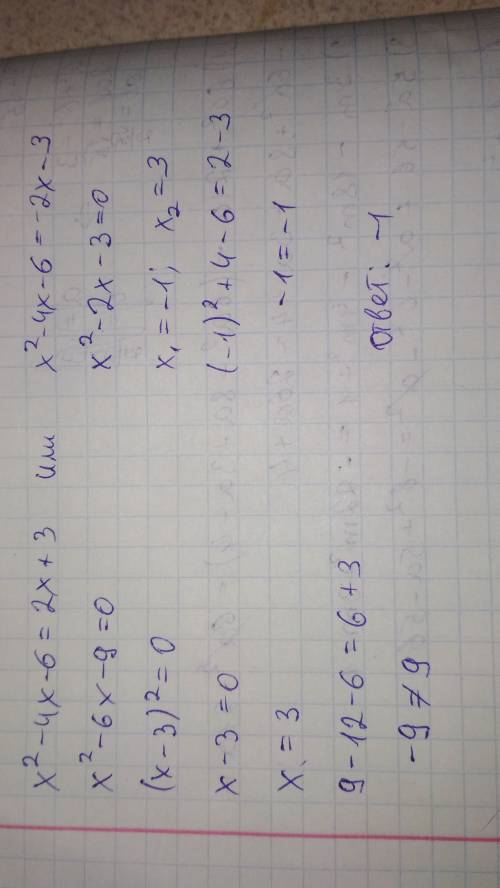 x² - 4x - 6 = 2x + 3 или x² - 4x - 6 = -2x - 3
x² - 6x - 9 = 0 x² - 2x - 3 = 0
(x - 3)² = 0 x₁ = -1; x₂ = 3
x - 3 = 0 (-1)² + 4 - 6 = 2 - 3
x = 3 -1 = -1
9 - 12 - 6 = 6 + 3
-9 ≠ 9 Ответ: -1